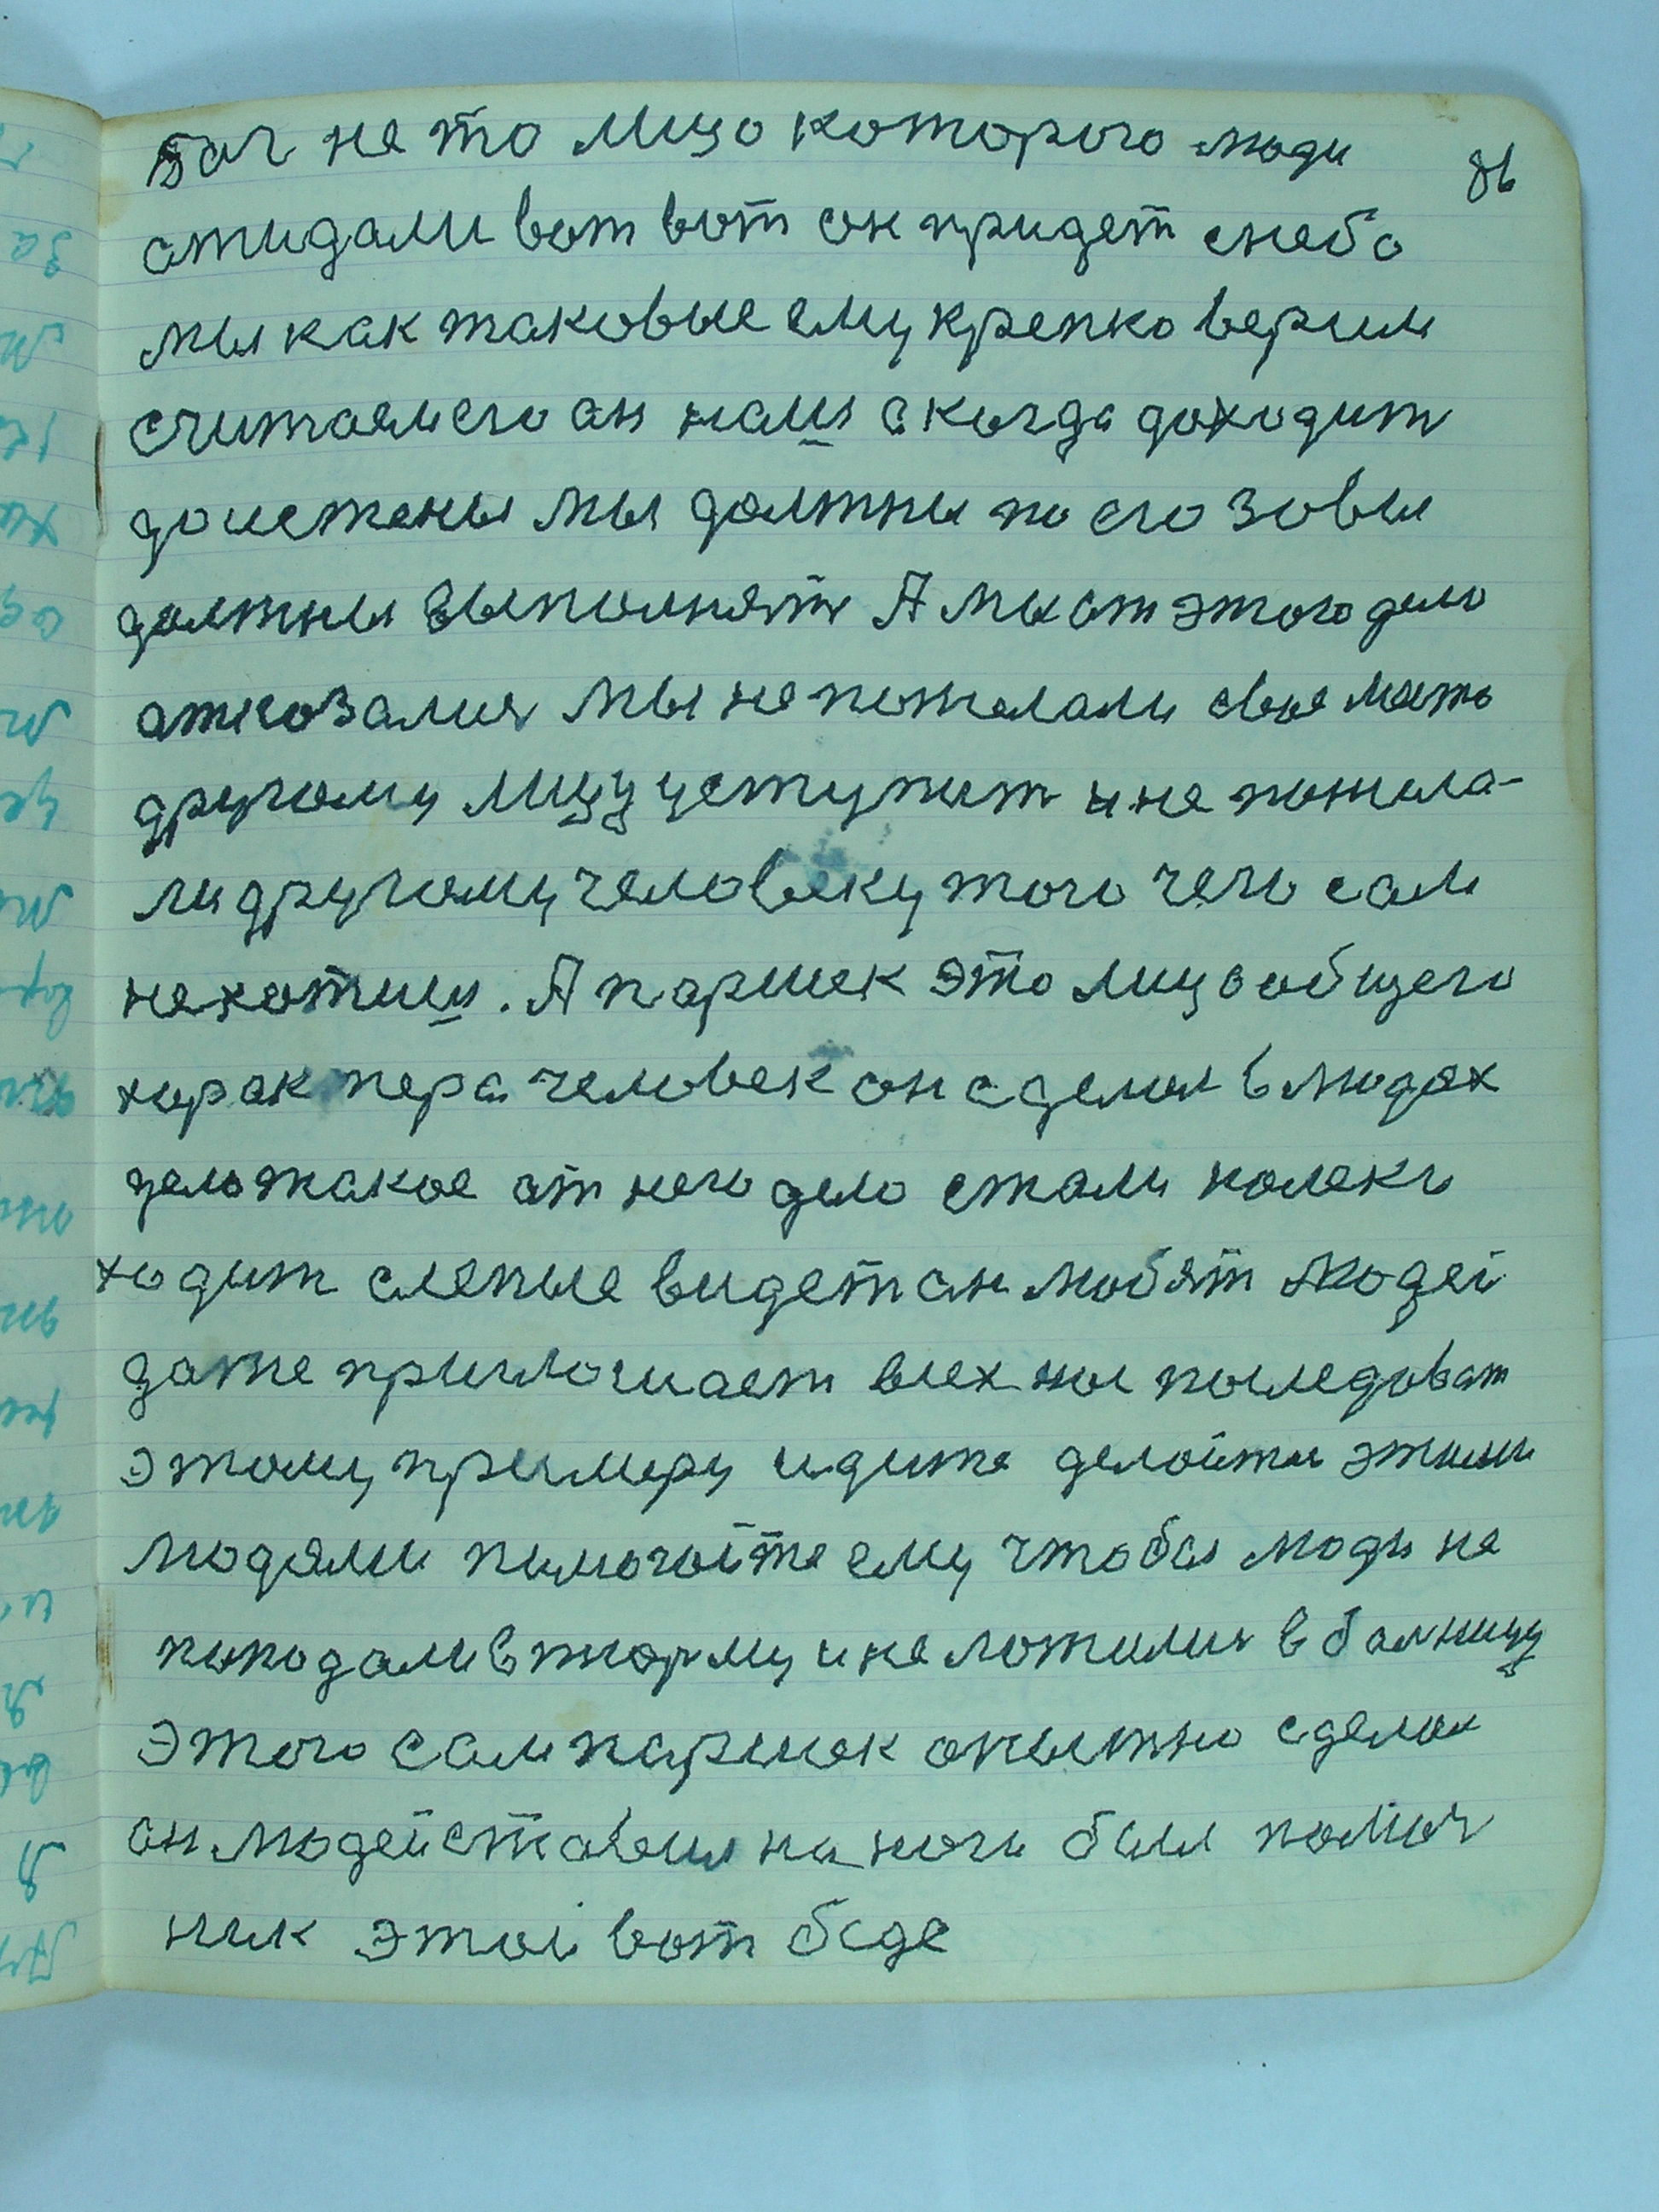 Бог не то лицо которого люди
ожидали вот вот он придет снебо
мы как таковые ему крепко верим
считаем его он наш а когда доходит
до истены мы должны по его зовы
должны выполнят А мы от этого дело
атказалися мы не пожелали свое место
другому лицу уступит и не пожела-
ли другому человеку того чего сам
нехотиш. А паршек это лицо общего
характера человек он сделал в людях
дело такое от него дело стали калеки
ходит слепые видет он любят людей
даже приглошает всех нас последоват
этому примеру идите делойте этими
людями помогойте ему чтобы люди не
поподали в тюрму и не ложилис в балницу
этого сам паршек опытно сделал
он людей ставил на ноги был помоч
ник этой вот беде
86